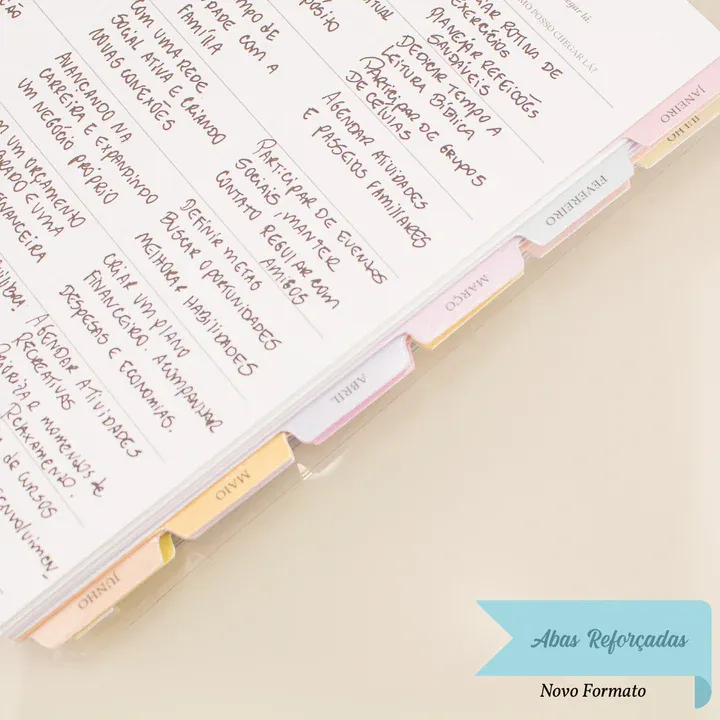 POSSO CHEGAR LÁ?
ROTINA DE
EXERCÍCIOS
PLANEJAR REFEIÇÕES
SAUDÁVEIS
DEDICAR TEMPO A
LEITURA BÍBLICA
PARTICIPAR DE GRUPOS
DE CÉLULAS
DE
COM A
FAMÍLIA
AGENDAR ATIVIDADES
E PASSEIOS FAMILIARES
COM UMA REDE
SOCIAL ATIVA E CRIANDO
CONEXÕES
PARTICIPAR DE EVENTOS
SOCIAIS, MANTER
CONTATO REGULAR COM
AMIGOS
AVANÇANDO NA
CARREIRA E EXPANDINDO
UM NEGÓCIO PRÓPRIO
DEFINIR METAS
BUSCAR OPORTUNIDADES
MELHORAR HABILIDADES
UM ORÇAMENTO
E UMA
FINANCEIRA
CRIAR UM PLANO
FINANCEIRO. ACOMPANHAR
DESPESAS E ECONOMIAS.
AGENDAR ATIVIDADES
RECREATIVAS
PRIORIZAR MOMENTOS DE
RELAXAMENTO.
DE CURSOS
JANEIRO
JULHO
FEVEREIRO
MARÇO
ABRIL
MAIO
JUNHO
Abas Reforçadas
Novo Formato